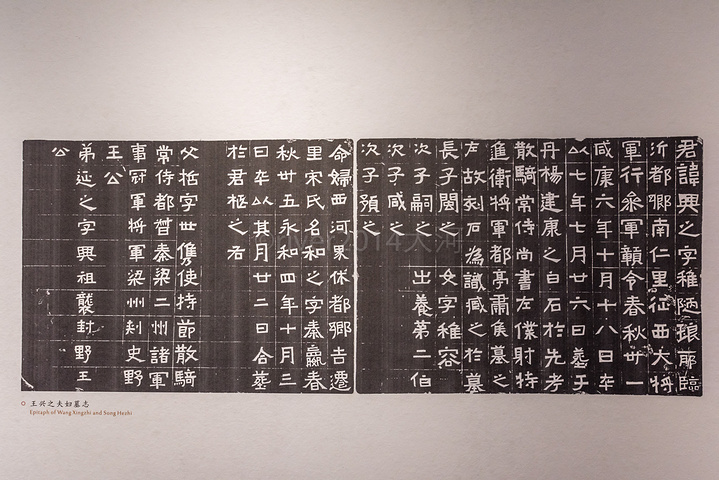 君諱興之字稚陋琅耶臨
沂都鄉南仁里征西大將
軍行參軍贛令春秋卅一
咸康六年十月十八日卒
以七年七月廿六日葬于
丹楊建康之白石於先考
散騎常侍尚書左僕射特
進衛將軍都亭肅侯墓之
左故刻石為識臧之於墓
長子閩之 女字稚容
次子嗣之 出養第二伯
次子咸之
次子預之
命婦西河界休都鄉吉遷
里宋氏名和之字秦嬴春
秋卅五永和四年十月三
日卒以其月廿二日合葬
於君柩之右
父哲字世儁使持節散騎
常侍都督秦梁二州諸軍
事冠軍將軍梁州刺史野
王公
弟延之字興祖襲封野王
公
王兴之夫妇墓志
Epitaph of Wang Xingzhi and Song Hezhi